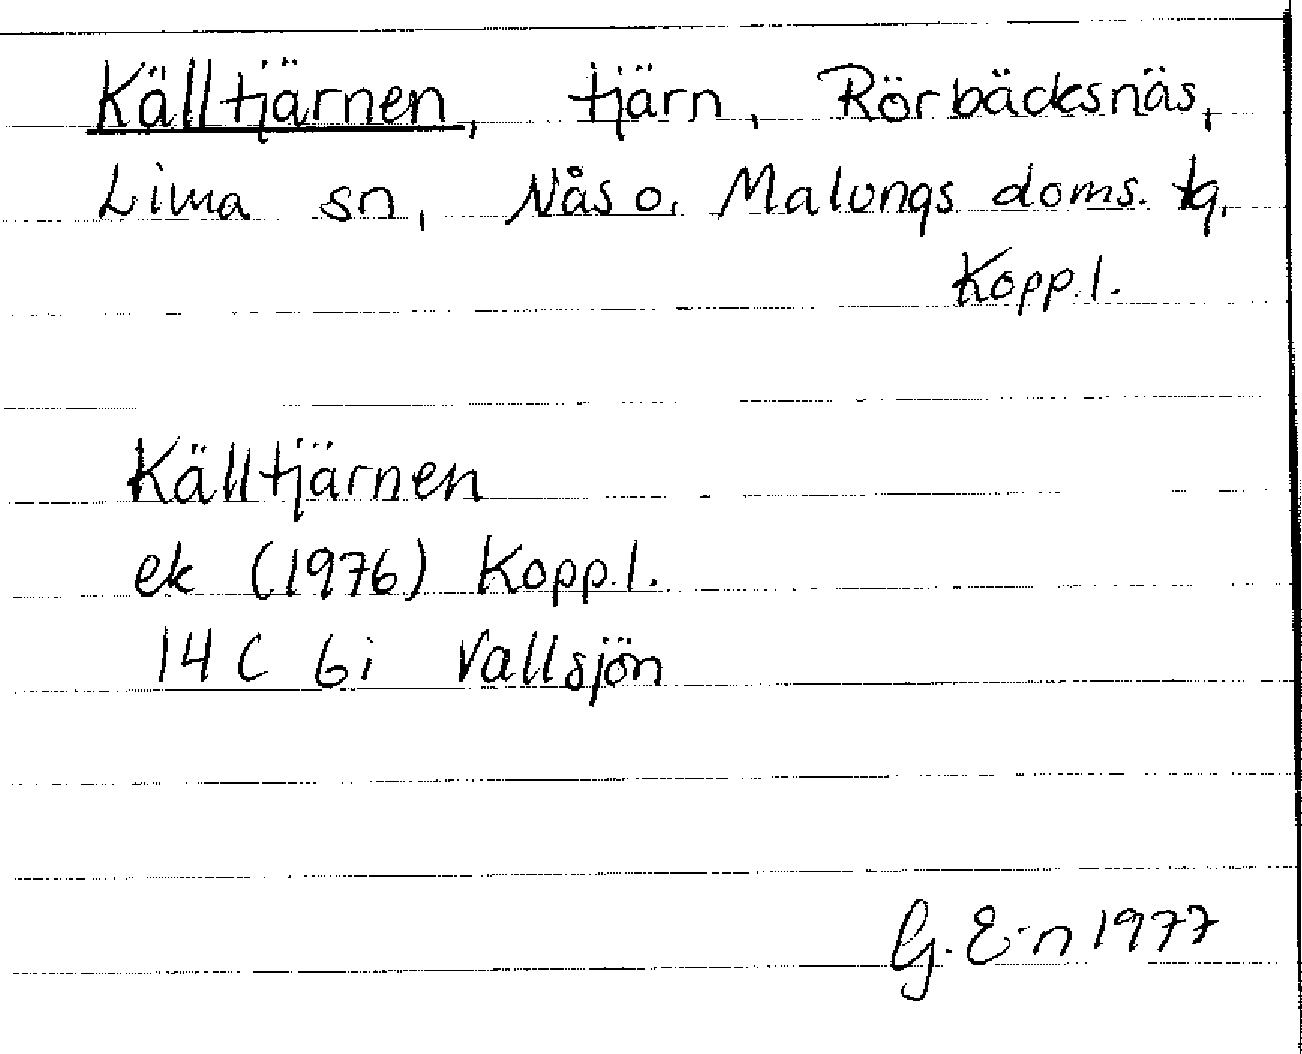 Källtjärnen, tjärn, Rörbäcksnäs,
Lima sn, Nås o. Malungs doms. tg,
Kopp.l.
Källtjärnen
ek (1976) Kopp.l.
14 C 6i Vallsjön
G. E-n 1977